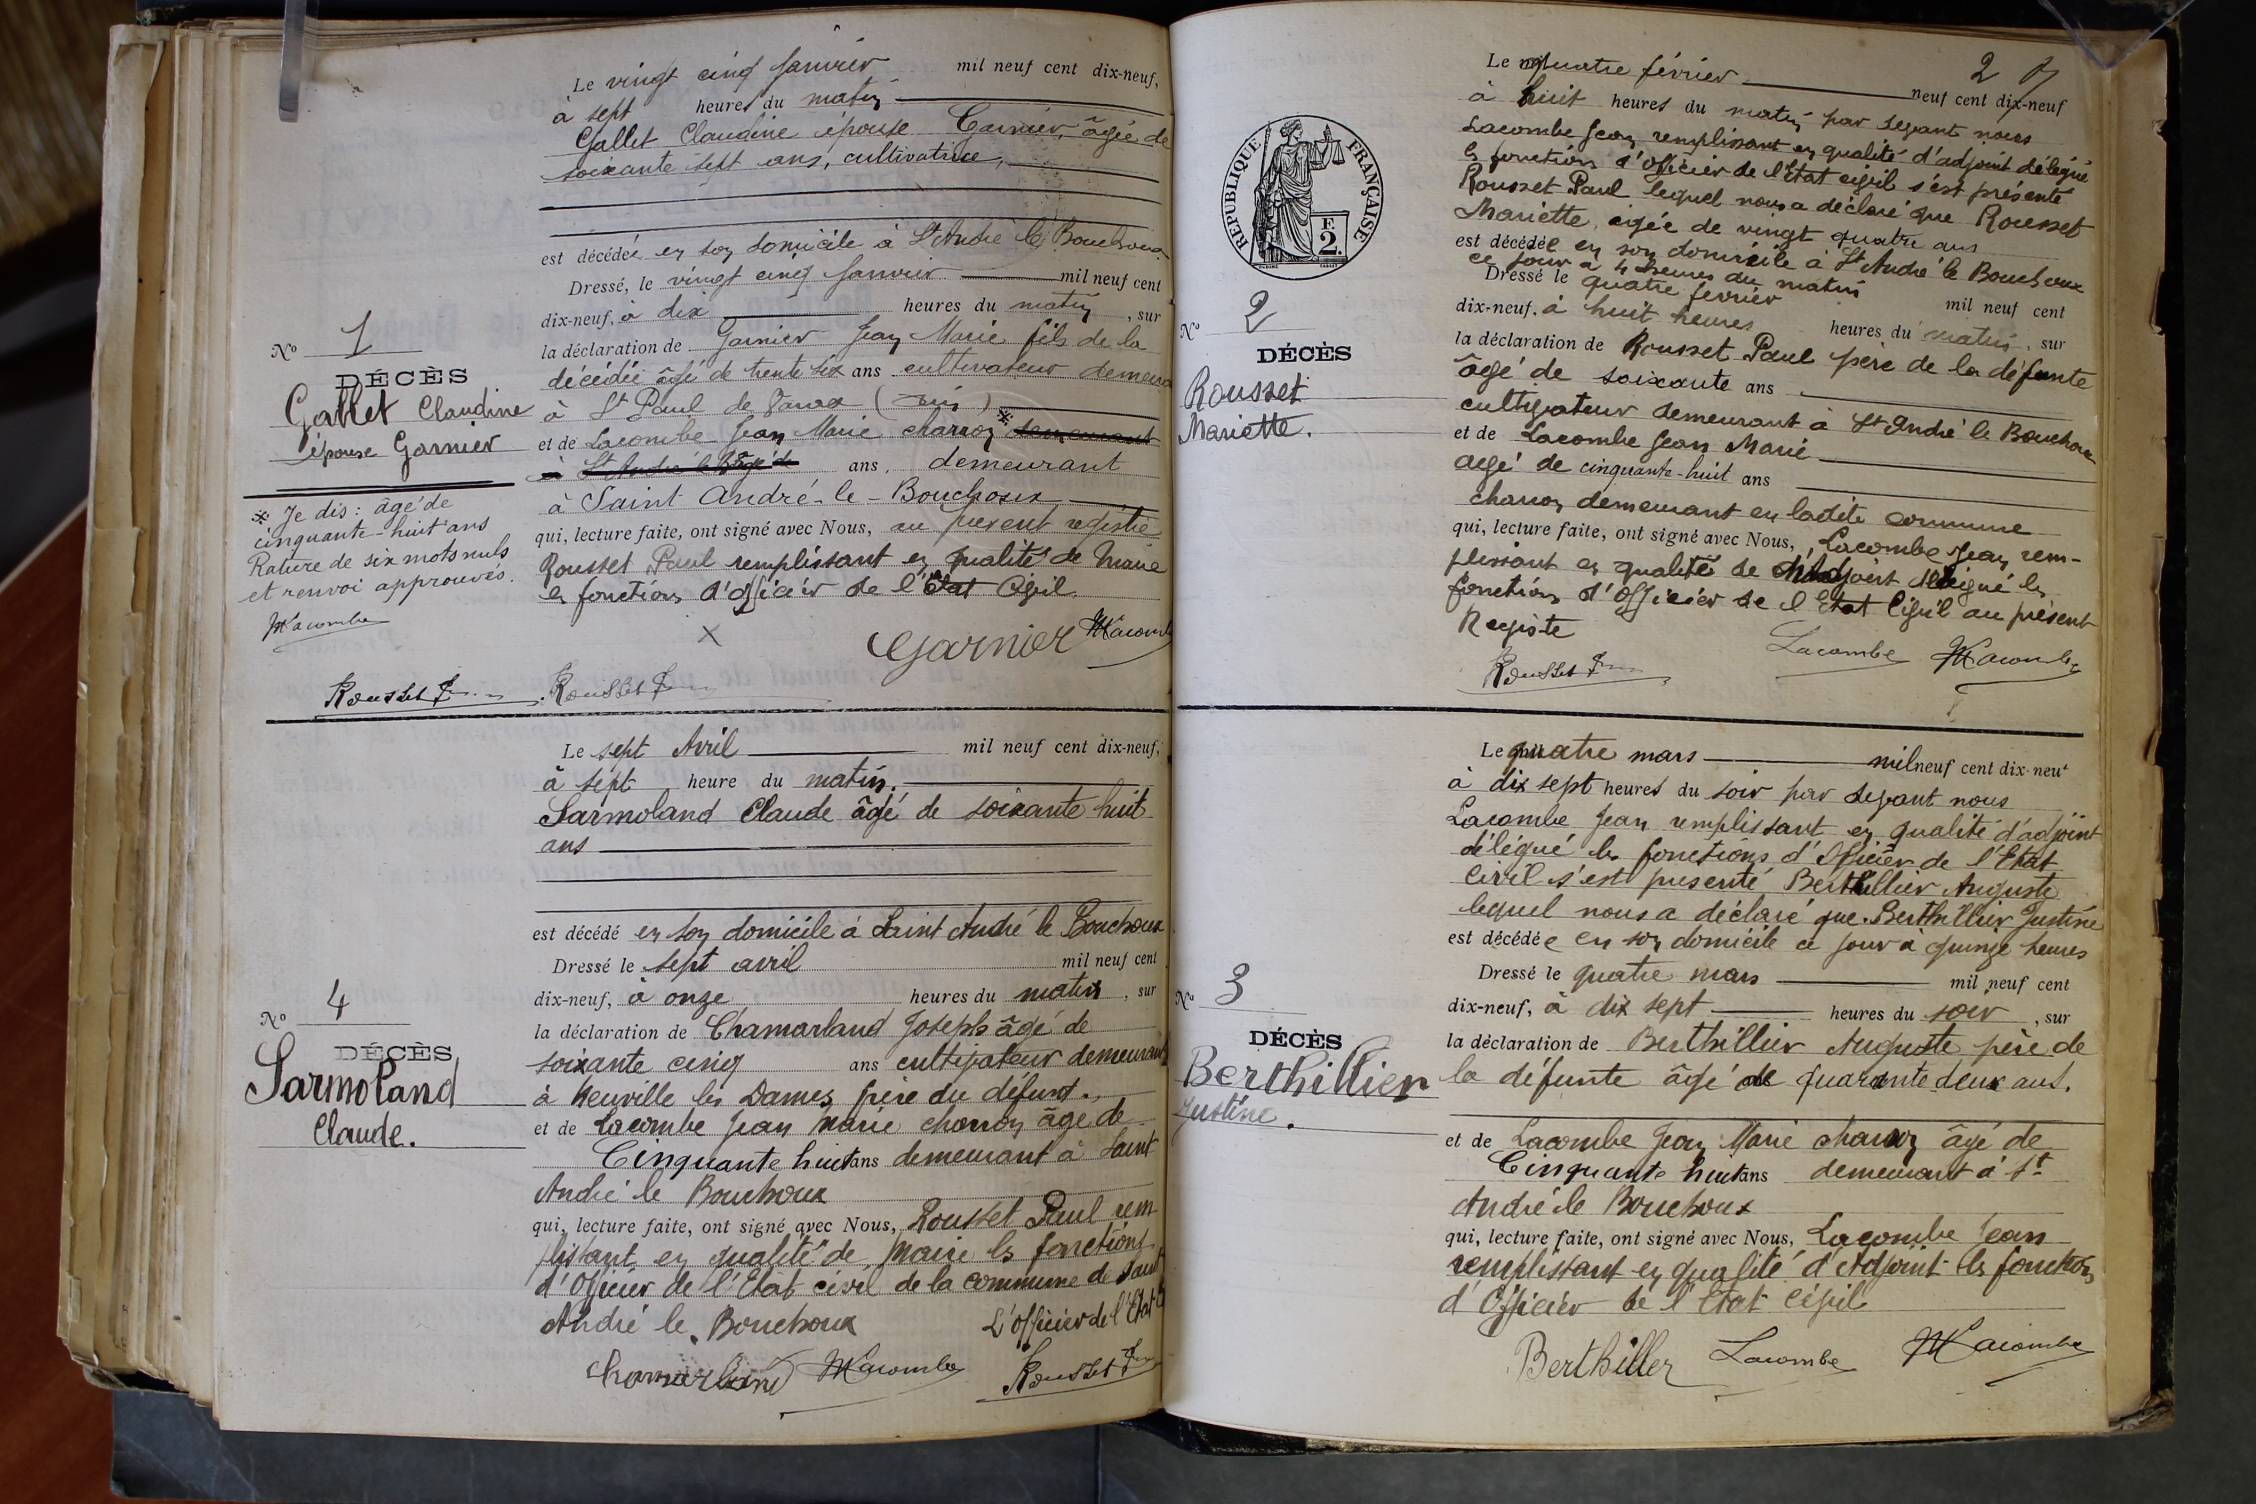 Le vingt cinq Janvier mil neuf cent dix-neuf,
à sept heures du matin
Gallet Claudine épouse Garnier, âgée de
soixante sept ans, cultivatrice,
est décédée en son domicile à St André le Bouchoux
Dressé, le vingt cinq Janvier mil neuf cent
dix-neuf, à dix heures du matin, sur
la déclaration de Garnier Jean Marie fils de la
décédée âgé de trente six ans cultivateur demeu
à St Paul de Varax (Ain)
et de Lacombe Jean Marie charron * demeurant
à St André le B âgé de ans, demeurant
à Saint André-le-Bouchoux
qui, lecture faite, ont signé avec Nous, au présent registre
Rousset Paul remplissant en qualité de Maire
les fonctions d'officier de l'Etat Civil
No 1
DÉCÈS
Gallet Claudine
épouse Garnier
* Je dis : âgé de
cinquante-huit ans
Rature de six mots nuls
et renvoi approuvés.
MLacombe
X
Garnier MLacomb
Rousset
Rousset
Le sept Avril mil neuf cent dix-neuf,
à sept heure du matin.
Sarmoland Claude âgé de soixante huit
ans
est décédé en son domicile à Saint André le Bouchoux
Dressé le sept avril mil neuf cent
dix-neuf, à onze heures du matin, sur
la déclaration de Chamarland Joseph âgé de
soixante cinq ans cultivateur demeurant
à Neuville les Dames, père du défunt.
et de Lacombe Jean Marie charron âgé de
Cinquante huit ans demeurant à Saint
André le Bouchoux
qui, lecture faite, ont signé avec Nous, Rousset Paul rem-
plissant en qualité de Maire les fonctions
d'Officier de l'Etat civil de la commune de Saint
André le Bouchoux L'officier de l'Etat C
No 4
DÉCÈS
Sarmoland
Claude.
Chamarland MLacombe Rousset
2
RÉPUBLIQUE FRANÇAISE
E
2.
Le quatre février neuf cent dix-neuf
à huit heures du matin par devant nous
Lacombe Jean remplissant en qualité d'adjoint délégué
les fonctions d'Officier de l'Etat civil s'est présenté
Rousset Paul lequel nous a déclaré que Rousset
Mariette, âgée de vingt quatre ans
est décédée en son domicile à St André le Bouchoux
ce jour à 4 heures du matin
Dressé le quatre février mil neuf cent
dix-neuf, à huit heures heures du matin, sur
la déclaration de Rousset Paul père de la défunte
âgé de soixante ans
cultivateur demeurant à St André le Bouchoux
et de Lacombe Jean Marie
âgé de cinquante-huit ans
charron demeurant en ladite commune
qui, lecture faite, ont signé avec Nous, Lacombe Jean, rem-
plissant en qualité de adjoint délégué les
fonctions d'Officier de l'Etat Civil au présent
Registre
No 2
DÉCÈS
Rousset
Mariette.
Rousset Lacombe MLacombe
Le quatre mars mil neuf cent dix-neuf
à dix sept heures du soir par devant nous
Lacombe Jean remplissant en qualité d'adjoint
délégué les fonctions d'Officier de l'Etat
civil s'est présenté Berthillier Auguste
lequel nous a déclaré que Berthillier Justine
est décédée en son domicile ce jour à quinze heures
Dressé le quatre mars mil neuf cent
dix-neuf, à dix sept heures du soir, sur
la déclaration de Berthillier Auguste père de
la défunte âgé de quarante deux ans.
et de Lacombe Jean Marie charron âgé de
Cinquante huit ans demeurant à St
André le Bouchoux
qui, lecture faite, ont signé avec Nous, Lacombe Jean
remplissant en qualité d'Adjoint les fonctions
d'Officier de l'Etat Civil
No 3
DÉCÈS
Berthillier
Justine.
Berthiller Lacombe MLacombe